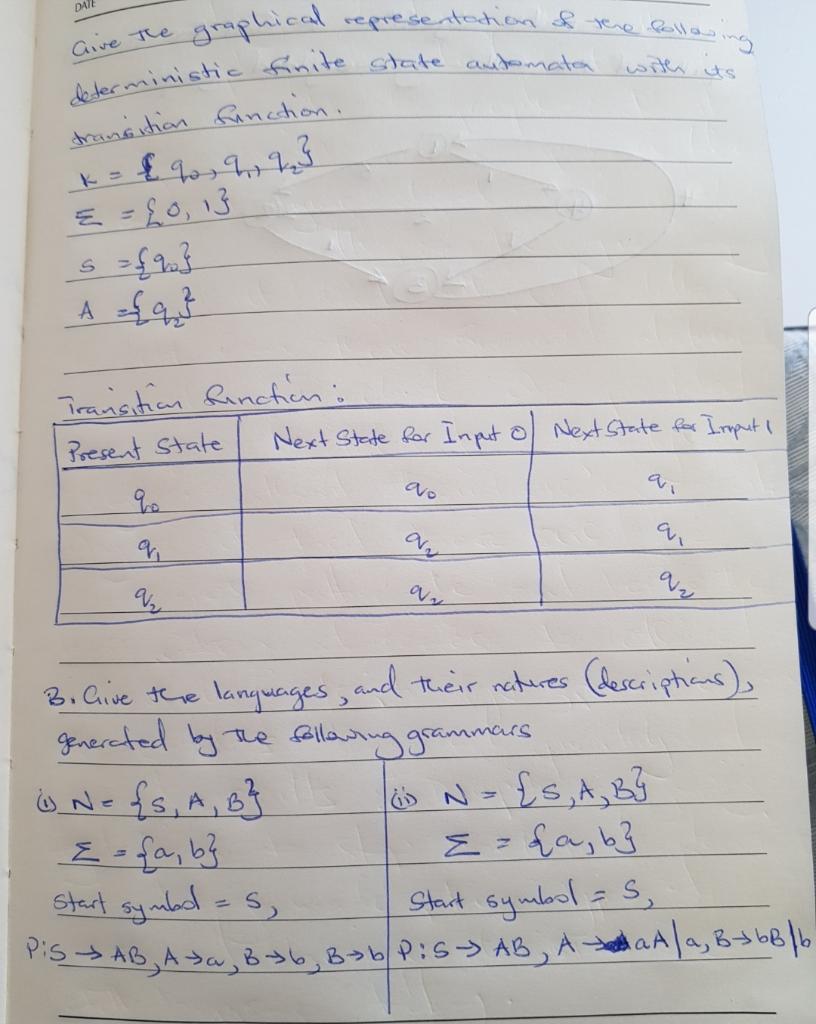 DATE
Give the graphical representation of the following
deterministic finite state automata with its
transition function.
K = { q₀, q₁, q₂}
Σ = {0, 1}
S = {q₀}
A = {q₂}
Transition function :
Present State | Next State for Input 0 | Next State for Imput 1
q₀ | q₀ | q₁
q₁ | q₂ | q₁
q₂ | q₂ | q₂
B. Give the languages, and their natures (descriptions),
generated by the following grammars
(i) N = {S, A, B}
Σ = {a, b}
Start symbol = S,
P: S → AB, A → a, B → b, B → b
(ii) N = {S, A, B}
Σ = {a, b}
Start symbol = S,
P: S → AB, A → aA | a, B → bB | b